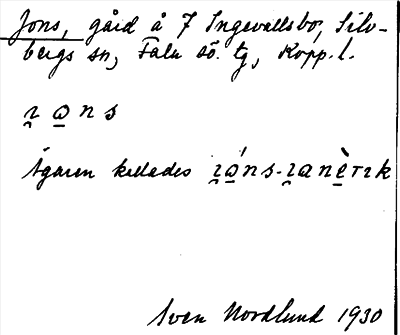 Jons, gård å 7 Ingevallsbo, Silv-
bergs sn, Falu sö. tg, Kopp. l.
ɪ̯ o̲ n s
Ägaren kallades ɪ̯ó̲ns-ɪ̯anè̲rɪk
Sven Nordlund 1930